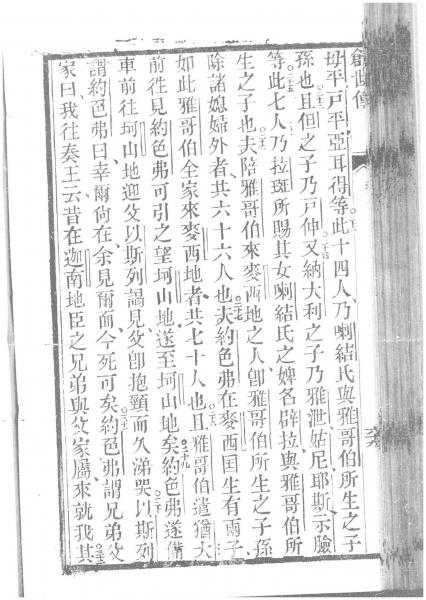 創世傳
母平、戸平、亞耳得、等此十四人、乃喇結氏與雅哥伯所生之子
孫也且但之子乃戸伸又納大利之子乃雅泄、姑尼、耶斯、示臉
等此七人乃拉斑所賜其女喇結氏之婢名辟拉與雅哥伯所
生之子也夫陪雅哥伯來麥西地之人卽雅哥伯所生之子孫
除諸媳婦外者共六十六人也夫約色弗在麥西国生有兩子
如此雅哥伯全家來麥西地者共七十人也且雅哥伯遣猶大
前徃見約色弗可引之望坷山地遂至坷山地矣約色弗遂備
車前往坷山地迎父以斯列謁見父卽抱頸而久涕哭以斯列
謂約色弗曰幸爾尙在余見爾面今死可矣約色弗謂兄弟父
家曰我往奏王云昔在迦南地臣之兄弟與父家屬來就我其